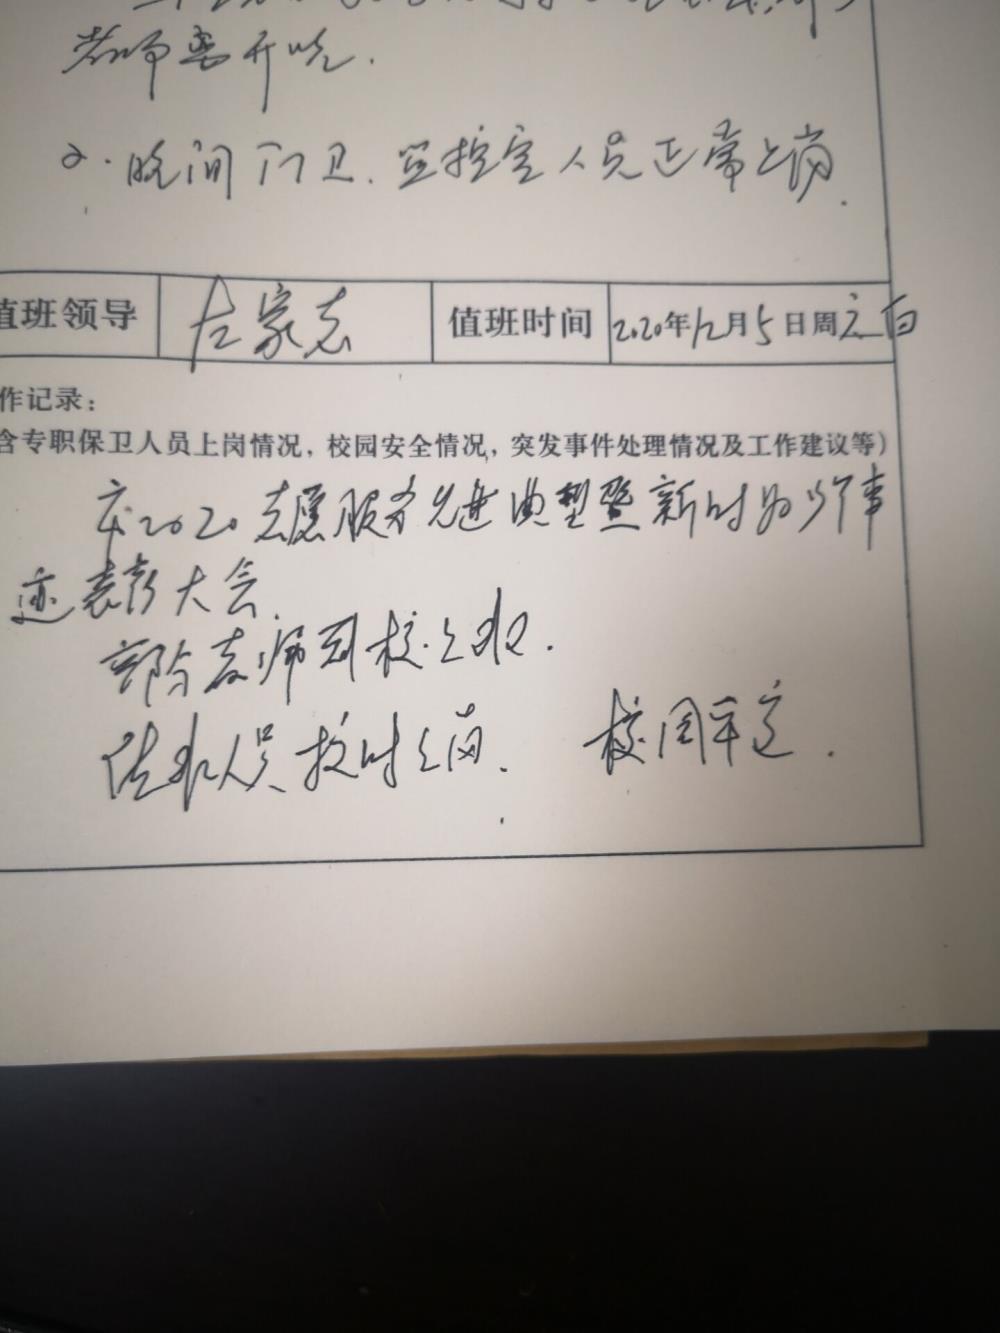 老师离开吃.
2. 晚间门卫. 监控室人员正常上岗.
值班领导 左家志 值班时间 2020年12月5日周六白
作记录:
含专职保卫人员上岗情况, 校园安全情况, 突发事件处理情况及工作建议等)
市2020志愿服务先进典型暨新时
事迹表彰大会.
部分老师到校上水.
人员按时上岗. 校园平定.